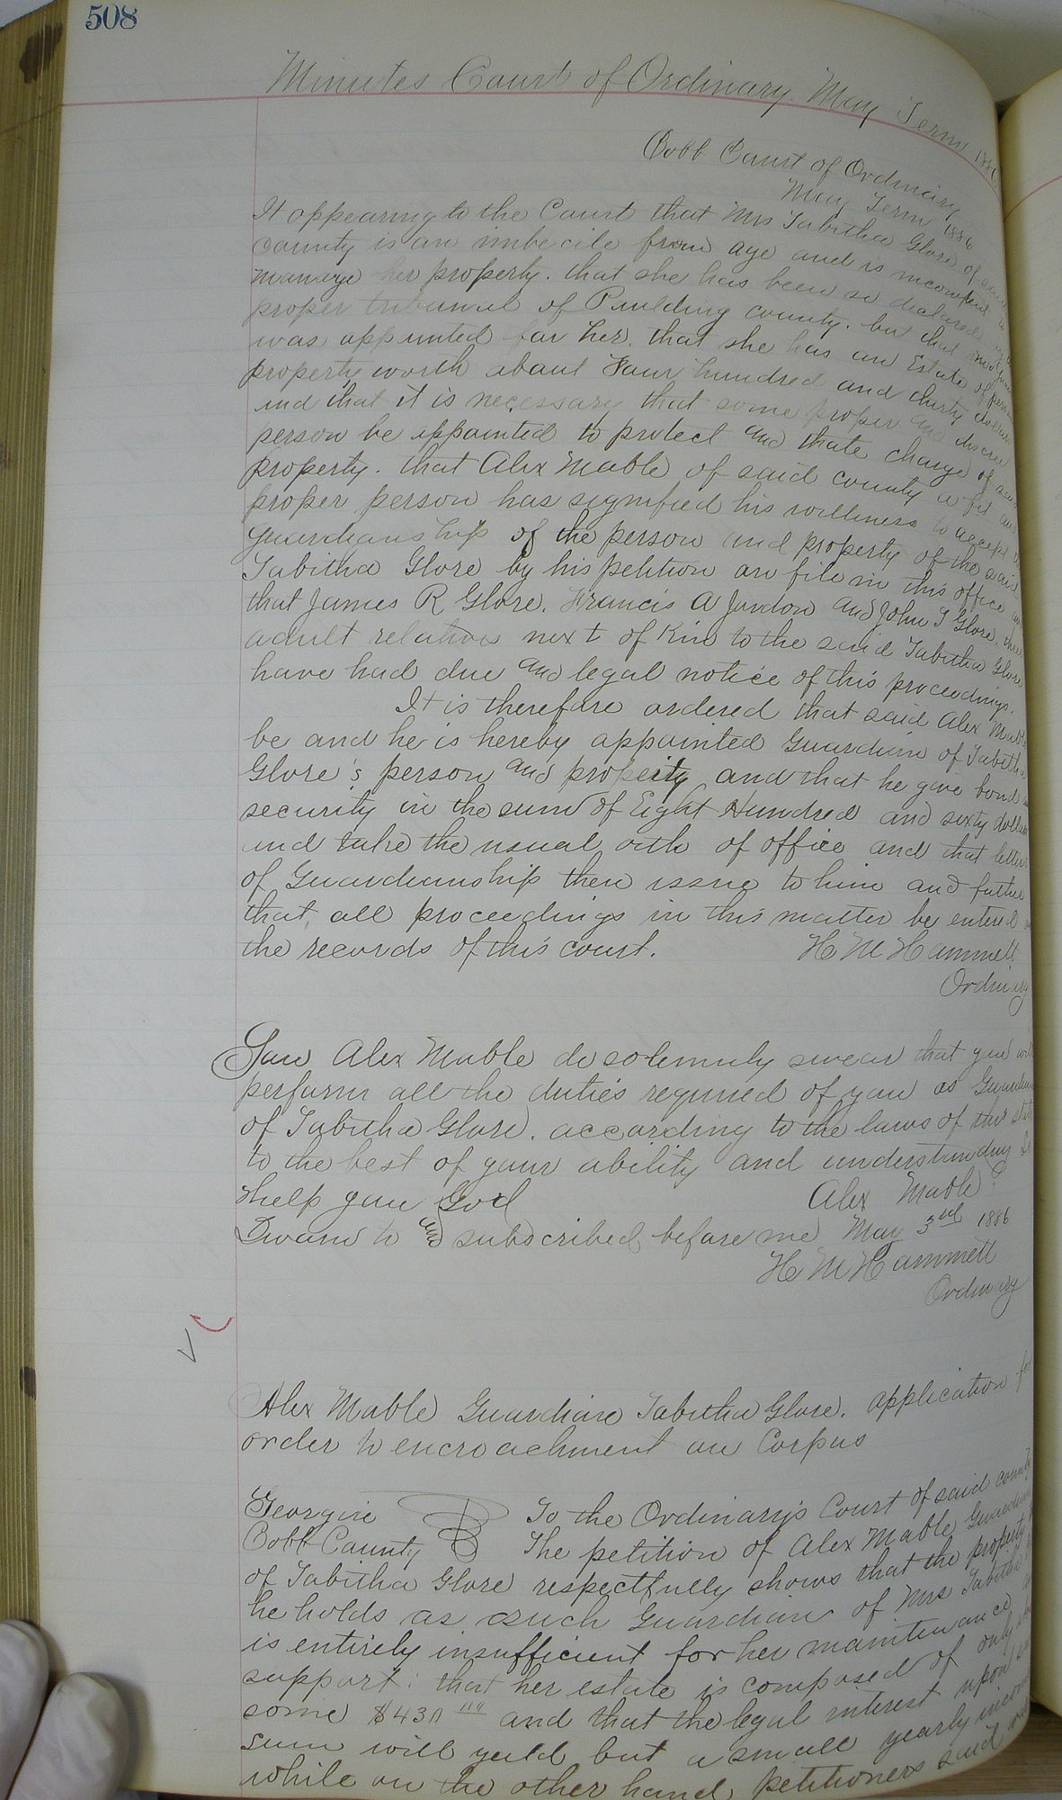 508
Minutes Court of Ordinary May Term 1886
Cobb Court of Ordinary
May Term 1886
It appearing to the Court that Mrs Tabitha Glore of said
county is an imbecile from age and is incompetent to
manage her property. that she has been so declared by
proper tribunal of Paulding county. but that no
was appointed for her. that she has an Estate of
property worth about Four hundred and thirty dollars
and that it is necessary that some proper and discreet
person be appointed to protect and thate charge of
property. that Alex Mable of said county a fit and
proper person has signified his williness to accept the
guardianship of the person and property of the said
Tabitha Glore by his petition on file in this office and
that James R Glore. Francis A Jordon and John T Glore.
adult relatives next of Kin to the said Tabitha Glore
have had due and legal notice of this proceedings.
It is therefore ordered that said Alex Mable
be and he is hereby appointed Guardian of Tabitha
Glore's person and property and that he give bond
security in the sum of Eight Hundred and sixty dollars
and take the usual oath of office and that letters
of Guardianship then issue to him and further
that all proceedings in this matter be entered
the records of this court. H M Hammett
Ordinary
You Alex Mable do solemnly swear that you will
perform all the duties required of you as Guardian
of Tabitha Glore. according to the laws of this State
to the best of your ability and understanding So
help you God Alex Mable
Sworn to and subscribed before me May 3rd 1886
H M Hammett
Ordinary
Alex Mable Guardian Tabitha Glore. application for
order to encroachment on Corpus
Georgia To the Ordinary's Court of said county
Cobb County The petition of Alex Mable Guardian
of Tabitha Glore respectfully shows that the property
he holds as such Guardian of Mrs Tabitha
is entirely insufficient for her maintenance
support: that her estate is composed of only
some $430 and that the legal interest upon
sum will yeild but a small yearly income
while on the other hand, petitioners said